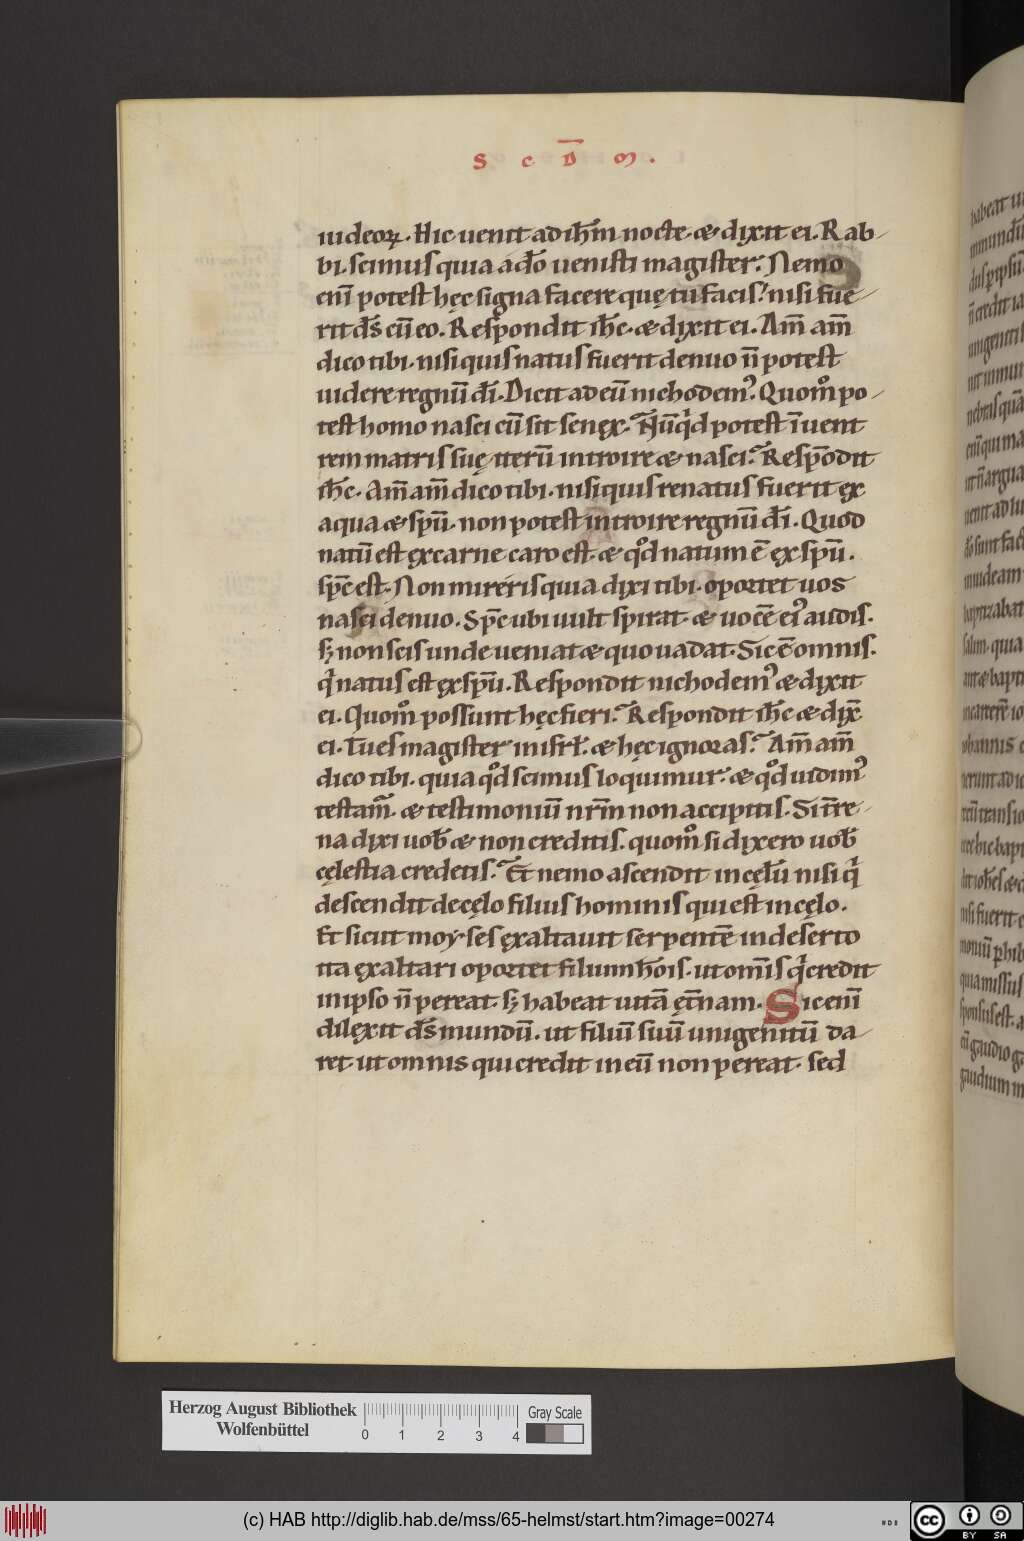 S C D̅ M .
iudeoꝝ. Hic uenit ad ih̅m nocte. & dixit ei. Rab-
bi. scimus quia a d̅o uenisti magister. Nemo
eni̅ potest hęc signa facere quę tu facis. nisi fue-
rit d̅s cu̅ eo. Respondit ih̅c. & dixit ei. Am̅ am̅
dico tibi. nisi quis natus fuerit denuo n̅ potest
uidere regnu̅ d̅i. Dicit ad eu̅ nichodem᾽. Quom̊ po-
test homo nasci cu̅ sit senęx. Nu̅qͥd potest i̅ uent
rem matris suę iteru̅ introire & nasci. Respo̅dit
ih̅c. Am̅ am̅ dico tibi. nisi quis renatus fuerit ęx
aqua & sp̅u. non potest introire regnu̅ d̅i. Quod
natu̅ est ęx carne caro est. & qͦd natum e̅ ęx sp̅u.
sp̅c est. Non mireris quia dixi tibi. oportet uos
nasci denuo. Sp̅c ubi uult spirat. & uoce̅ ei᾽ audis.
sꝫ non scis unde ueniat & quo uadat. Sic e̅ omnis.
qͥ natus est ęx sp̅u. Respondit nichodem᾽ & dixit
ei. Quom̊ possunt hęc fieri. Respondit ih̅c & dix̅
ei. Tu es magister in isrl̅. & hęc ignoras. Am̅ am̅
dico tibi. quia qͦd scimus loquimur. & qͦd uidim᾽
testam᾽. & testimoniu̅ nr̅m non accipitis. Si t̅re-
na dixi uob̅ & non creditis. quom̊ si dixero uob̅
cęlestia credetis. Et nemo ascendit in cęlu̅ nisi qͥ
descendit de cęlo filius hominis qui est in cęlo.
Et sicut moyses ęxaltauit serpente̅ in deserto
ita ęxaltari oportet filium ho̅is. ut om̅is qͥ credit
in ipso n̅ pereat. sꝫ habeat uita̅ ęt̅nam. Sic eni̅
dilęxit d̅s mundu̅. ut filiu̅ suu̅ unigenitu̅ da-
ret ut omnis qui credit in eu̅ non pereat. sed
Herzog August Bibliothek
Wolfenbüttel
0 1 2 3 4
Gray Scale
(c) HAB http://diglib.hab.de/mss/65-helmst/start.htm?image=00274
cc BY SA